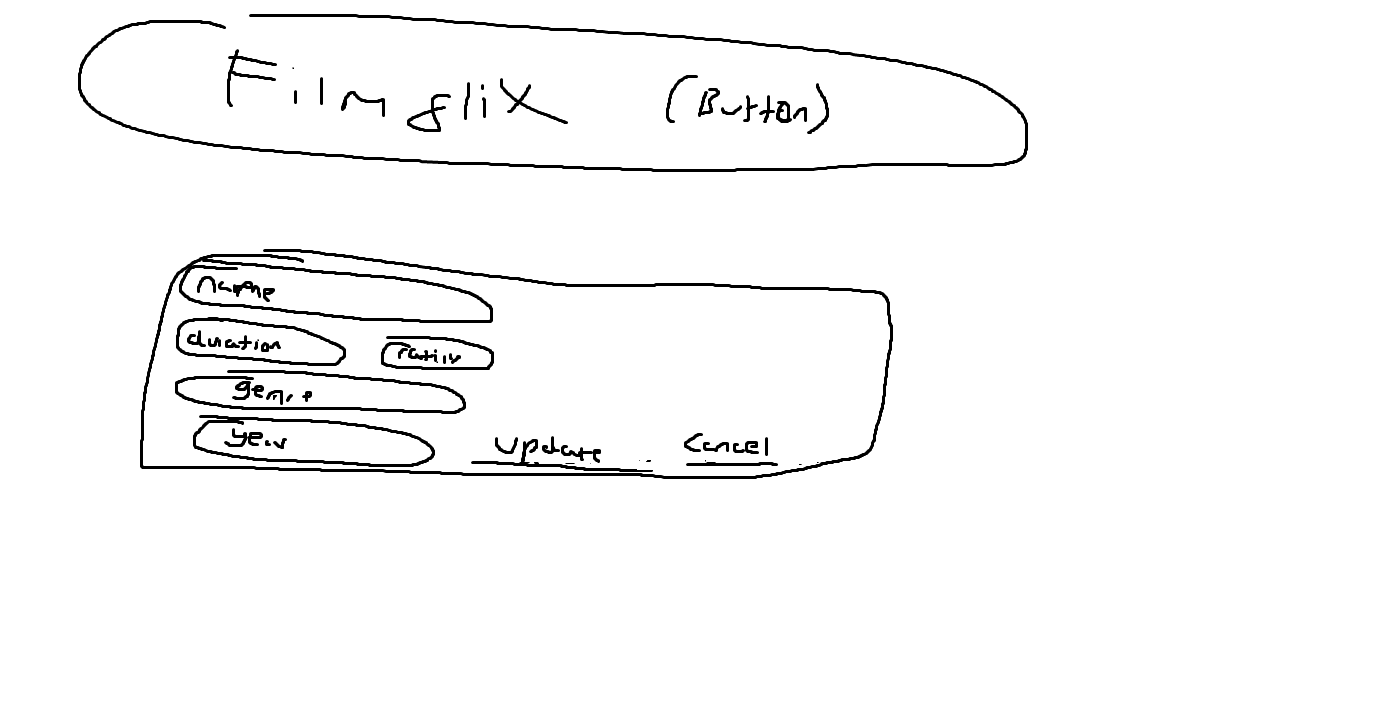 Filmflix (Button)
name
duration rating
genre
year update cancel